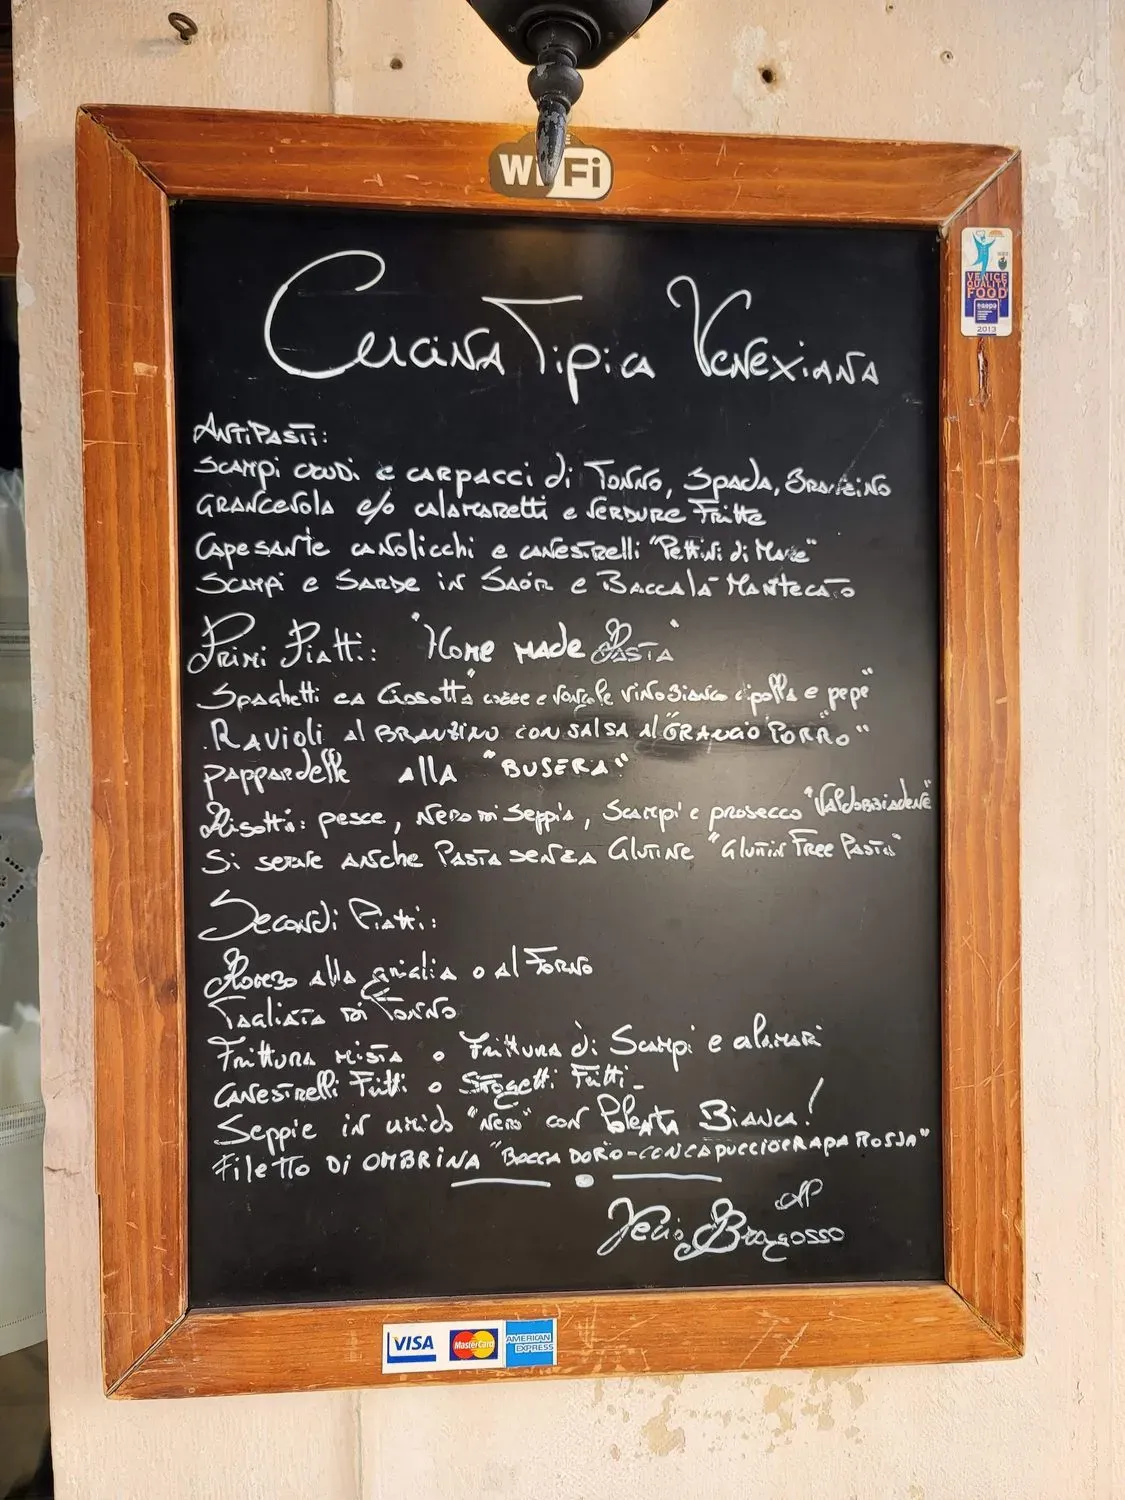 WiFi
VENICE
QUALITY
FOOD
eaepa
2013
Cucina Tipica Venexiana
Antipasti:
Scampi crudi e carpacci di Tonno, Spada, Branzino
Grancevola e/o calamaretti e verdure Fritte
Capesante canolicchi e canestrelli "Pettini di Mare"
Scampi e Sarde in Saòr e Baccalà Mantecato
Primi Piatti: "Home made Pasta"
Spaghetti ea Ciosotta" cozze e vongole vino bianco cipolla e pepe"
Ravioli al BRANZINO CON SALSA Al "GRANCIO PORRO"
pappardelle alla "BUSERA"
Risotti: pesce, Nero di Seppia, Scampi e prosecco "Valdobbiadene"
Si serve anche Pasta senza Glutine "Glutin Free Pasta"
Secondi Piatti:
alla griglia o al Forno
Tagliata di Tonno
Frittura mista o Frittura di Scampi e calamari
Canestrelli Fritti o Sfogetti Fritti
Seppie in umido "Nero" con Polenta Bianca!
Filetto Di OMBRINA "BOCCA DORO-CON CAPUCCIO E RAPA ROSSA"
Bragosso
VISA
MasterCard
AMERICAN
EXPRESS